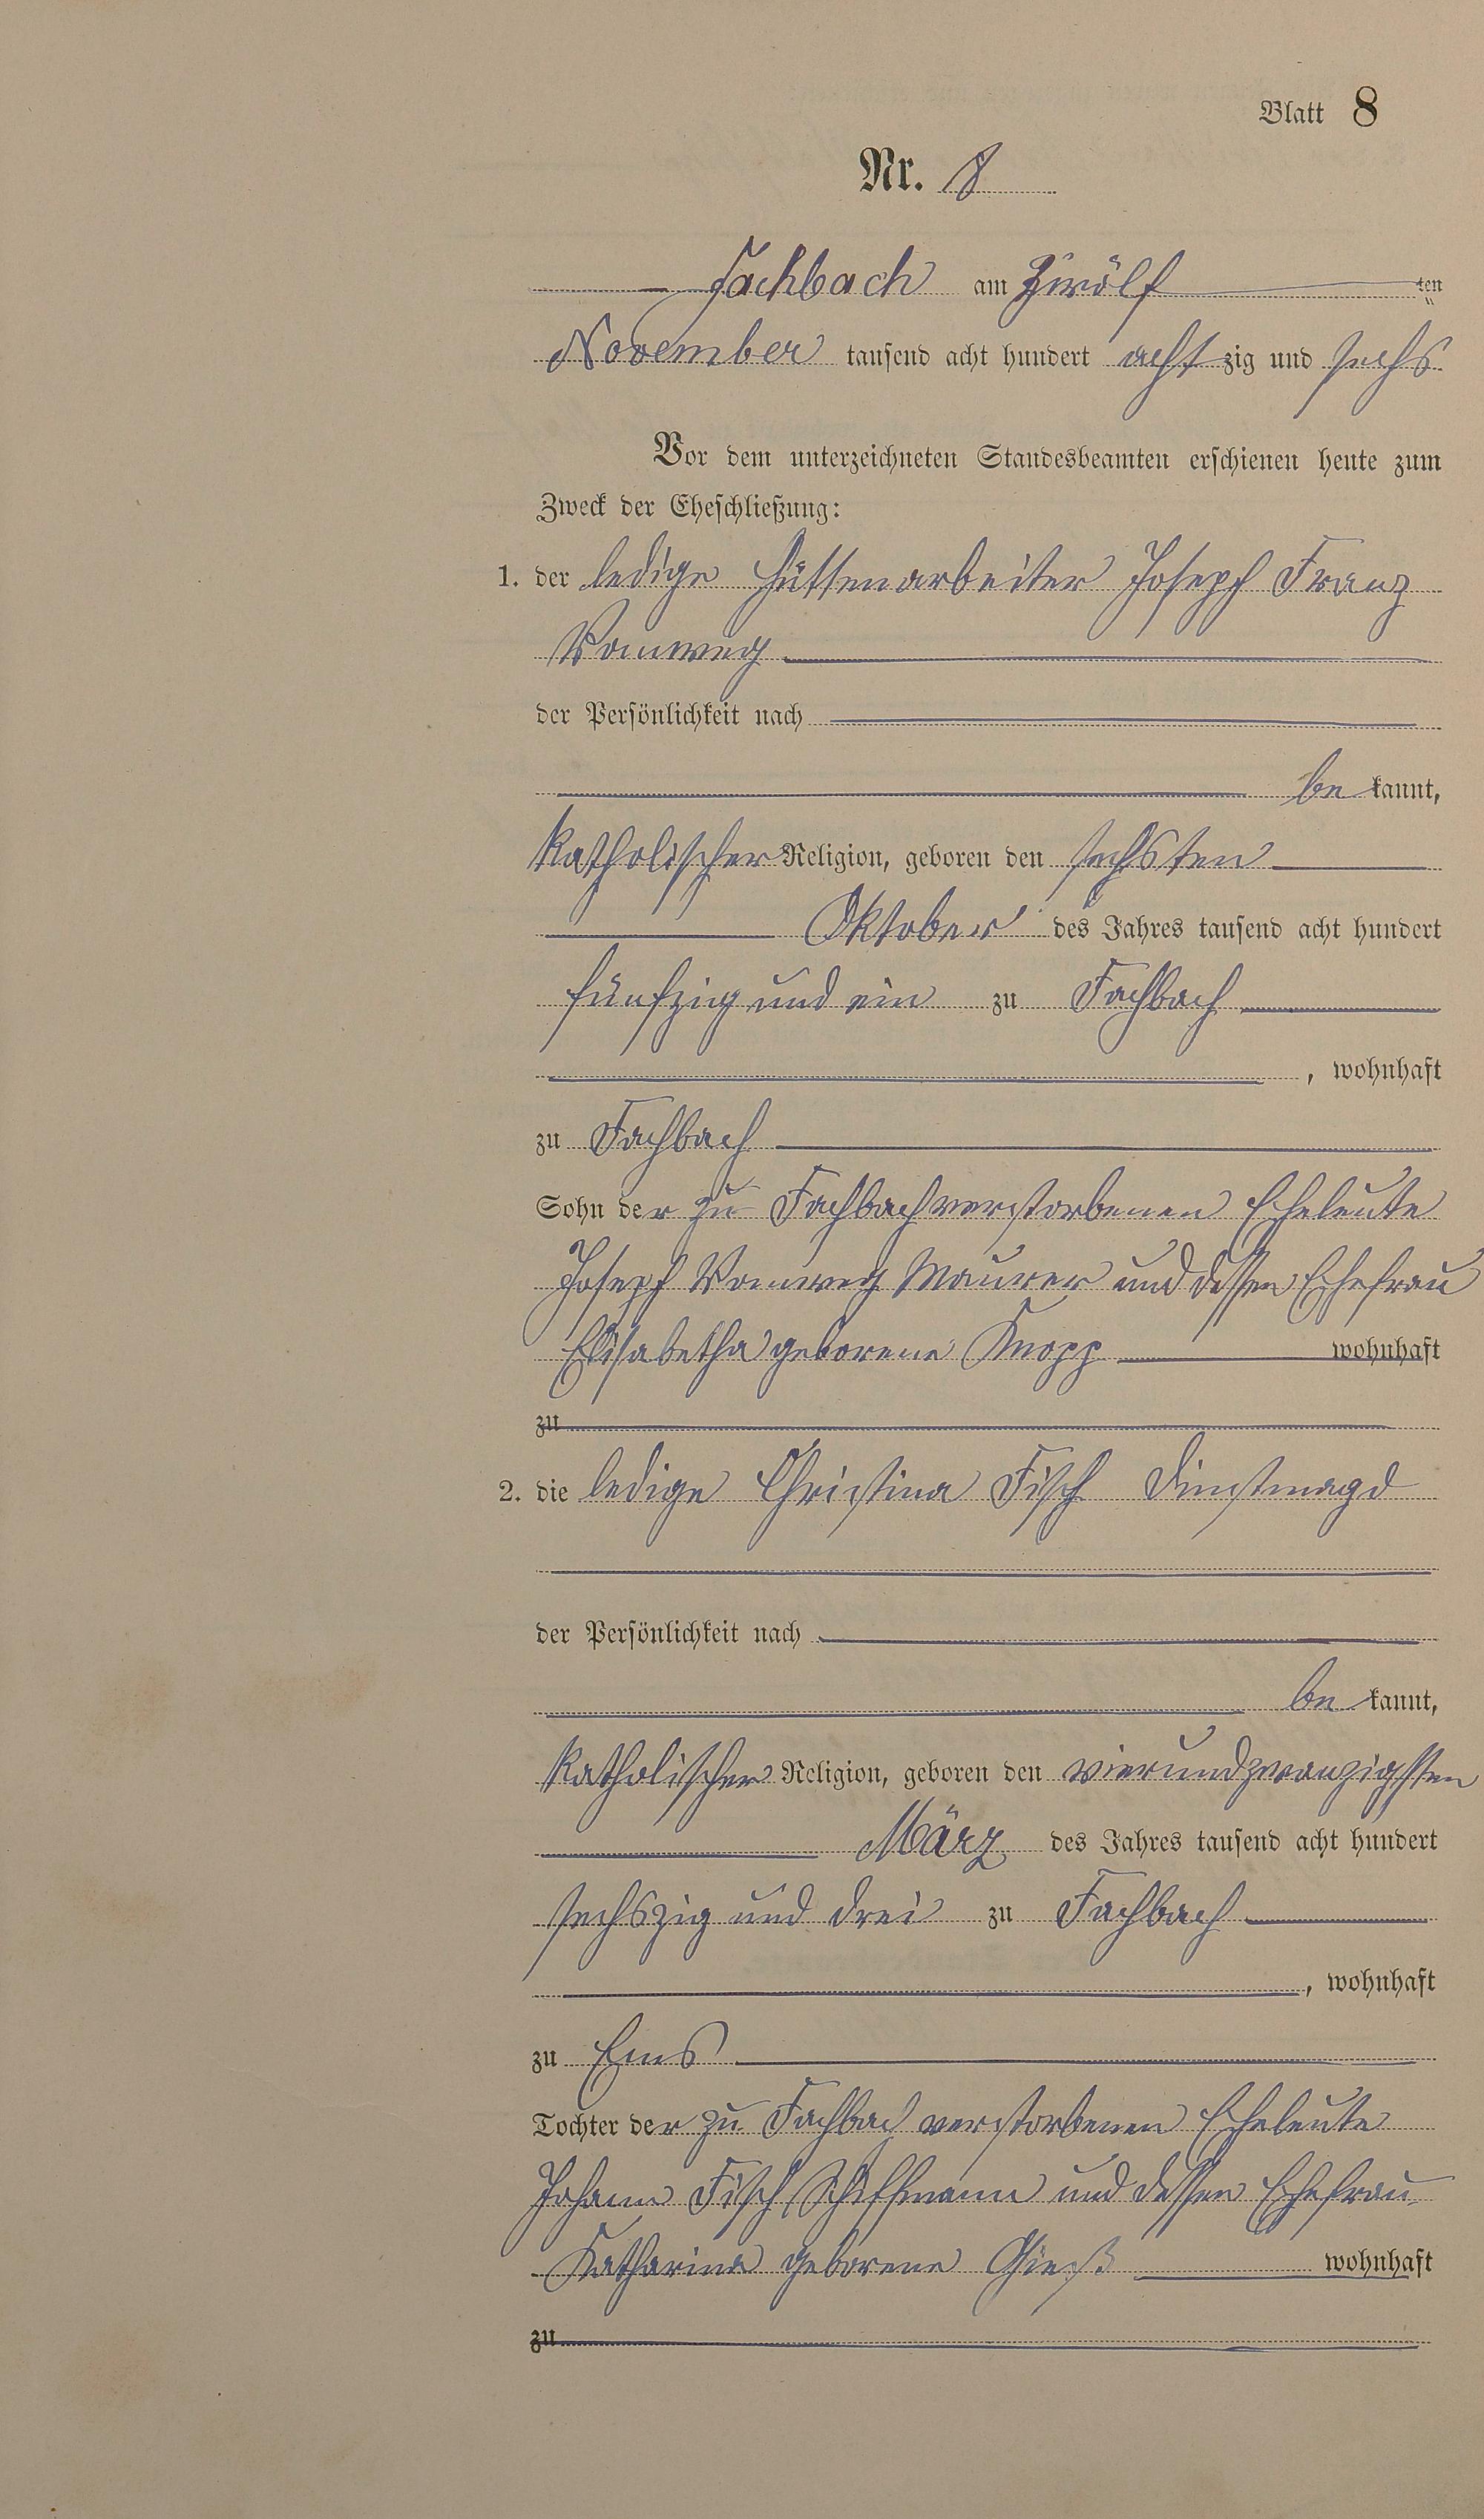 Blatt 8
Nr. 8
Fachbach am Zwölf ten
November tausend acht hundert acht zig und sechs
Vor dem unterzeichneten Standesbeamten erschienen heute zum
Zweck der Eheschließung:
1. der ledige Hüttenarbeiter Joseph Franz
Vomweg
der Persönlichkeit nach
be kannt,
katholischer Religion, geboren den sechsten
Oktober des Jahres tausend acht hundert
fünfzig und ein zu Fachbach
, wohnhaft
zu Fachbach
Sohn der zu Fachbach verstorbenen Eheleute
Joseph Vomweg Maurer und dessen Ehefrau
Elisabetha geborene Knopp wohnhaft
zu
2. die ledige Christina Fisch Dinstmagd
der Persönlichkeit nach
be kannt,
katholischer Religion, geboren den vierundzwanzigsten
März des Jahres tausend acht hundert
sechszig und drei zu Fachbach
, wohnhaft
zu Ems
Tochter der zu Fachbach verstorbenen Eheleute
Johann Fisch, Schiffmann und dessen Ehefrau
Katharina geborene Gieß wohnhaft
zu